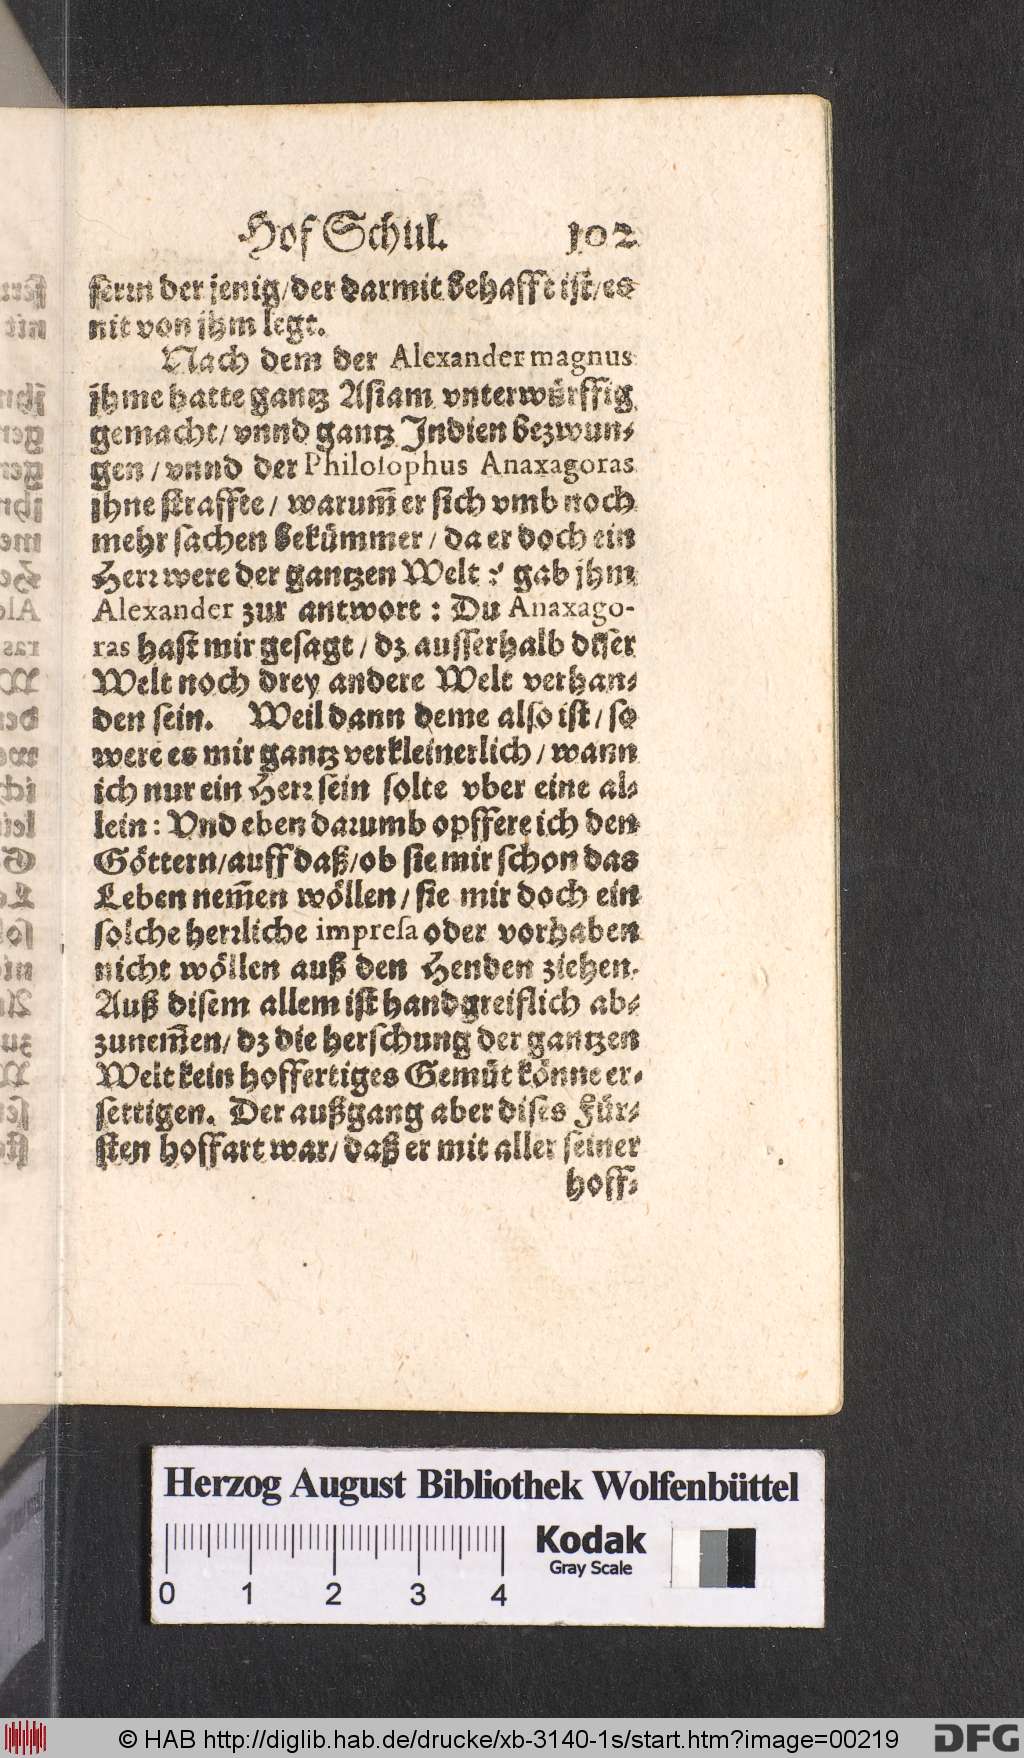 Hof Schul. 102
ſern der jenig/der darmit behafft iſt/es
nit von jhm legt.
Nach dem der Alexander magnus
jhme hatte gantz Aſiam vnterwürffig
gemacht/ vnnd gantz Indien bezwun-
gen / vnnd der Philoſophus Anaxagoras
jhne ſtraffte / warum̃ er ſich vmb noch
mehr ſachen bekümmer / da er doch ein
Herr were der gantzen Welt ? gab jhm
Alexander zur antwort : Du Anaxago-
ras haſt mir geſagt / dz auſſerhalb diſer
Welt noch drey andere Welt verhan-
den ſein. Weil dann deme alſo iſt / ſo
were es mir gantz verkleinerlich / wann
ich nur ein Herr ſein ſolte vber eine al-
lein : Vnd eben darumb opffere ich den
Göttern/auff daß/ob ſie mir ſchon das
Leben nem̃en wöllen / ſie mir doch ein
ſolche herrliche impreſa oder vorhaben
nicht wöllen auß den Henden ziehen.
Auß diſem allem iſt handgreiflich ab-
zunem̃en/ dz die herſchung der gantzen
Welt kein hoffertiges Gemüt könne er-
ſettigen. Der außgang aber diſes Für-
ſten hoffart war/ daß er mit aller ſeiner
hoff-
Herzog August Bibliothek Wolfenbüttel
Kodak
Gray Scale
0 1 2 3 4
© HAB http://diglib.hab.de/drucke/xb-3140-1s/start.htm?image=00219
DFG